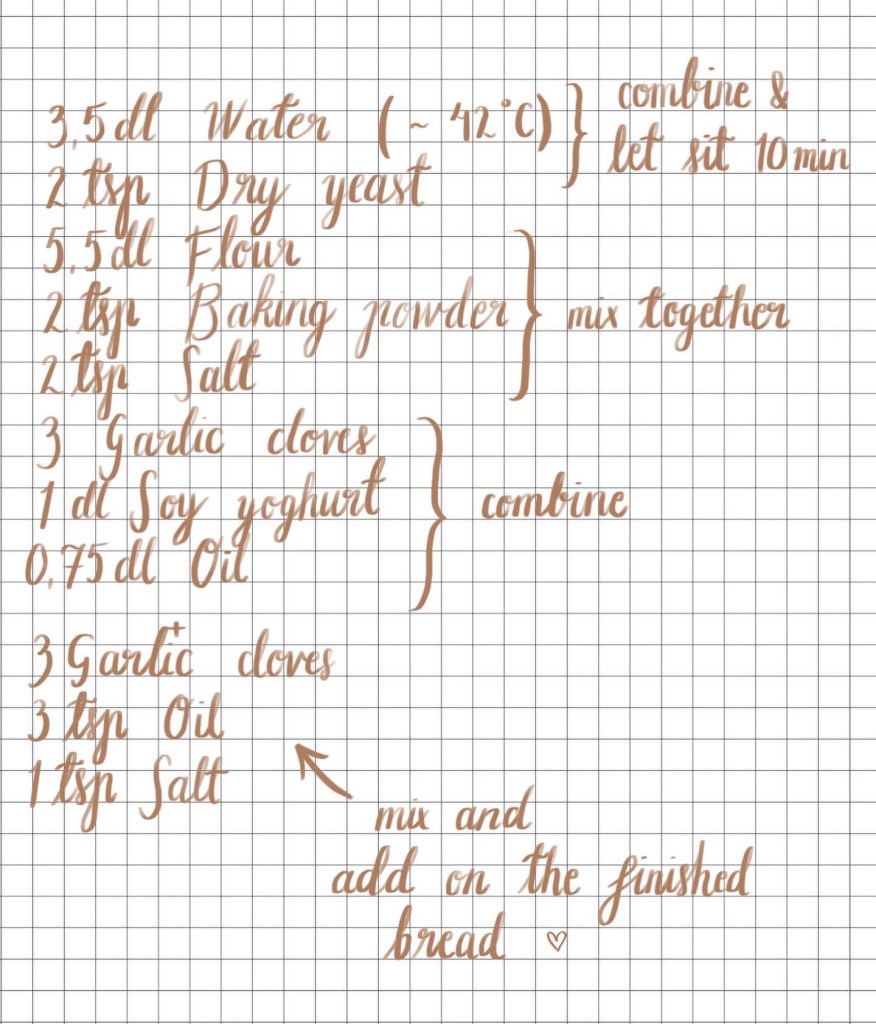 3,5 dl Water (~ 42°C) } combine &
let sit 10 min
2 tsp Dry yeast
5,5 dl Flour
2 tsp Baking powder } mix together
2 tsp Salt
3 Garlic cloves
1 dl Soy yoghurt } combine
0,75 dl Oil
+
3 Garlic cloves
3 tsp Oil
1 tsp Salt
mix and
add on the finished
bread ♡